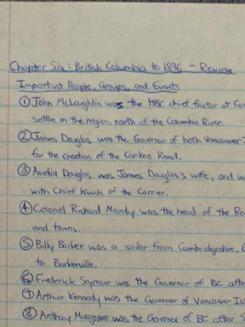 Chapter Six: British Columbia to 1896 - Review
Important People, Groups, and Events
① John McLaughlin was the HBC chief factor at For
settle in the region north of the Columbia River.
② James Douglas was the Governor of both Vancouver
for the creation of the Cariboo Road.
③ Amelia Douglas was James Douglas's wife, and w
with Chief Kwah of the Carrier.
④ Colonel Richard Moody was the head of the Ro
and towns.
⑤ Billy Barker was a sailor from Cambridgeshire,
to Barkerville.
⑥ Frederick Seymour was the Governor of BC after
⑦ Arthur Kennedy was the Governor of Vancouver Isl
⑧ Anthony Musgrave was the Governor of BC after S